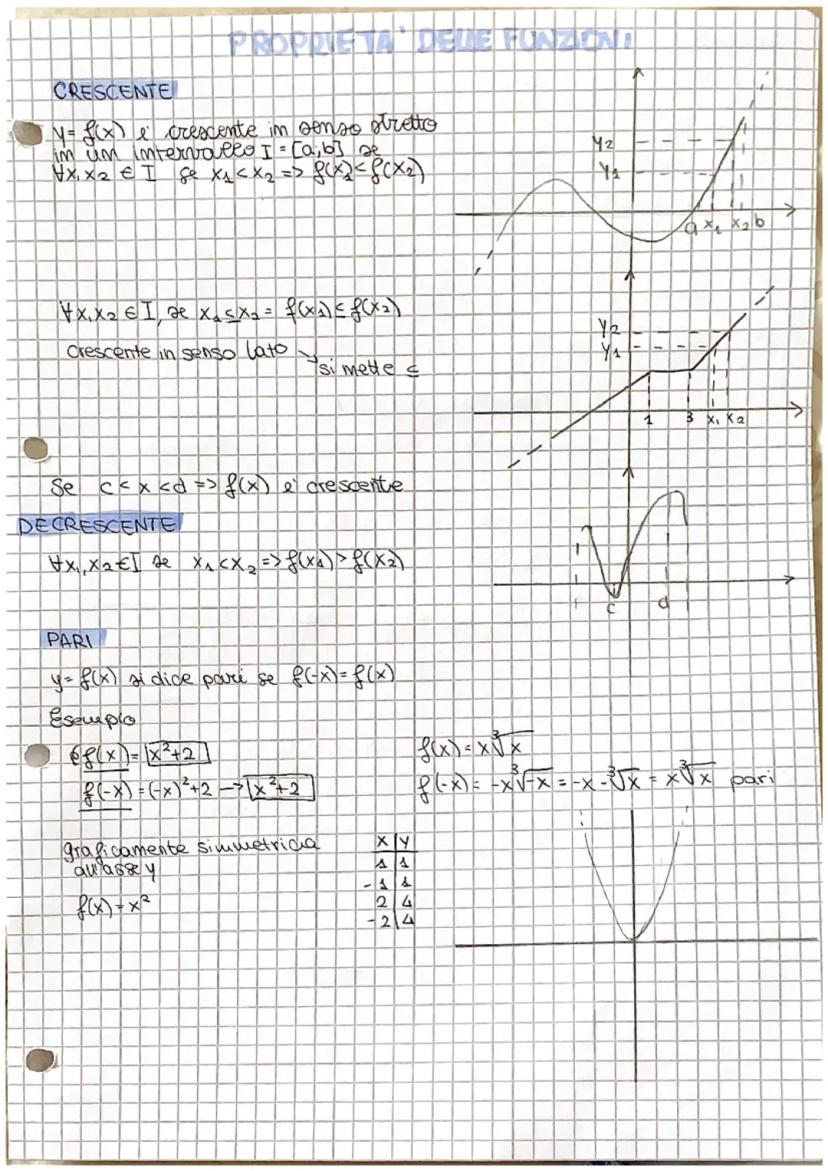 PROPRIETA' DELLE FUNZIONI
CRESCENTE
y = f(x) e' crescente in senso stretto
in un intervallo I = [a,b] se
∀x, x2 ∈ I se x1 < x2 => f(x)1 < f(x2)
Y2
Y1
a x1 x2 b
∀x, x2 ∈ I, se x1 ≤ x2 = f(x1) ≤ f(x2)
crescente in senso lato
si mette ≤
Y2
Y1
1 3 x1 x2
Se c < x < d => f(x) e' crescente
DECRESCENTE
∀x1, x2 ∈ I se x1 < x2 => f(x1) > f(x2)
c d
PARI
y = f(x) si dice pari se f(-x) = f(x)
Esempio
è f(x) = x²+2
f(-x) = (-x)²+2 -> x²+2
f(x) = x∛x
f(-x) = -x∛-x = -x-∛x = x∛x pari
graficamente simmetricia
all'asse y
f(x) = x²
x y
1 1
-1 1
2 4
-2 4